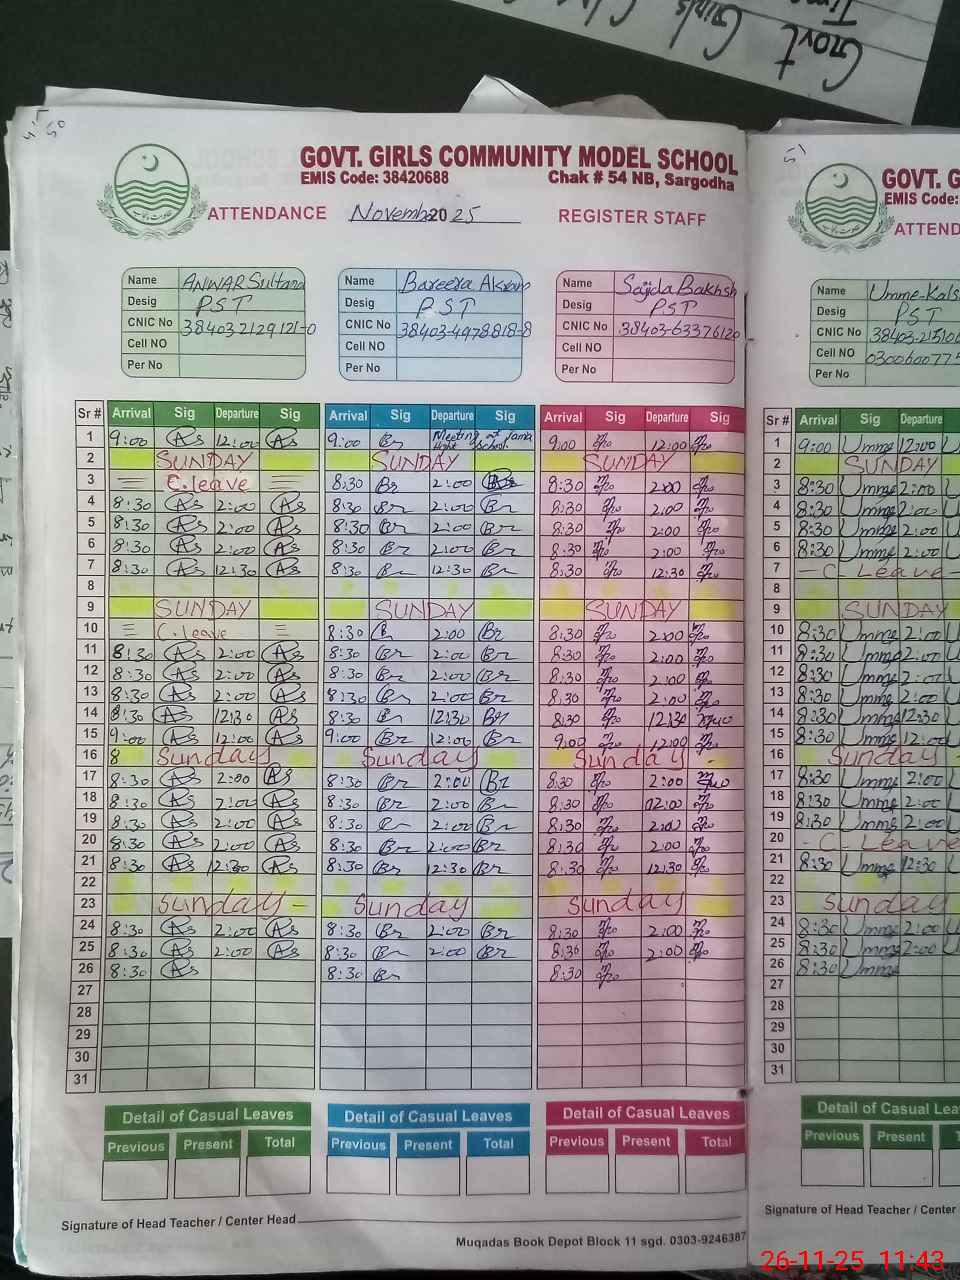 Govt Girls
Time
50
51
GOVT. GIRLS COMMUNITY MODEL SCHOOL
EMIS Code: 38420688 Chak # 54 NB, Sargodha
ATTENDANCE November 2025 REGISTER STAFF
GOVT. G
EMIS Code:
ATTEND
Name ANWAR Sultana Name Bareera Akram Name Sajda Bakhsh Name Umme-Kals
Desig PST Desig P.ST Desig PST Desig PST
CNIC No 384032129121-0 CNIC No 38403-4978818-8 CNIC No 38403-63376120 CNIC No
Cell NO Cell NO Cell NO Cell NO 0300600775
Per No Per No Per No Per No
Sr # Arrival Sig Departure Sig Arrival Sig Departure Sig Arrival Sig Departure Sig Sr # Arrival Sig Departure
1 9:00 As 12:00 As 9:00 Br Meeting at Jama High School 9:00 12:00 1 9:00 Umme 12:00 U
2 SUNDAY SUNDAY SUNDAY 2 SUNDAY
3 C.leave 8:30 Br 2:00 8:30 2:00 3 8:30 Umme 2:00 U
4 8:30 As 2:00 As 8:30 Br 2:00 Br 8:30 2:00 4 8:30 Umme 2:00 U
5 8:30 As 2:00 As 8:30 Br 2:00 Br 8:30 2:00 5 8:30 Umme 2:00 U
6 8:30 As 2:00 As 8:30 Br 2:00 Br 8:30 2:00 6 8:30 Umme 2:00 U
7 8:30 As 12:30 As 8:30 Br 12:30 Br 8:30 12:30 7 - C - Leave -
8 8
9 SUNDAY SUNDAY SUNDAY 9 SUNDAY
10 C.leave 8:30 Br 2:00 Br 8:30 2:00 10 8:30 Umme 2:00 U
11 8:30 As 2:00 As 8:30 Br 2:00 Br 8:30 2:00 11 8:30 Umme 2:00 U
12 8:30 As 2:00 As 8:30 Br 2:00 Br 8:30 2:00 12 8:30 Umme 2:00 U
13 8:30 As 2:00 As 8:30 Br 2:00 Br 8:30 2:00 13 8:30 Umme 2:00 U
14 8:30 As 12:30 As 8:30 Br 12:30 Br 8:30 12:30 14 8:30 Umme 12:30 U
15 9:00 As 12:00 As 9:00 Br 12:00 Br 9:00 12:00 15 8:30 Umme 12:00 U
16 8 Sunday Sunday Sunday - 16 Sunday
17 8:30 As 2:00 As 8:30 Br 2:00 Br 8:30 2:00 17 8:30 Umme 2:00 U
18 8:30 As 2:00 As 8:30 Br 2:00 Br 8:30 02:00 18 8:30 Umme 2:00 U
19 8:30 As 2:00 As 8:30 Br 2:00 Br 8:30 2:00 19 8:30 Umme 2:00 U
20 8:30 As 2:00 As 8:30 Br 2:00 Br 8:30 2:00 20 - C - Leave
21 8:30 As 12:30 As 8:30 Br 12:30 Br 8:30 12:30 21 8:30 Umme 12:30 U
22 22
23 Sunday - Sunday Sunday 23 Sunday
24 8:30 As 2:00 As 8:30 Br 2:00 Br 8:30 2:00 24 8:30 Umme 2:00 U
25 8:30 As 2:00 As 8:30 Br 2:00 Br 8:30 2:00 25 8:30 Umme 2:00 U
26 8:30 As 8:30 Br 8:30 26 8:30 Umme
27 27
28 28
29 29
30 30
31 31
Detail of Casual Leaves Detail of Casual Leaves Detail of Casual Leaves Detail of Casual Lea
Previous Present Total Previous Present Total Previous Present Total Previous Present T
Signature of Head Teacher / Center Head Signature of Head Teacher / Center Head
Muqadas Book Depot Block 11 sgd. 0303-9246387
26-11-25 11:43